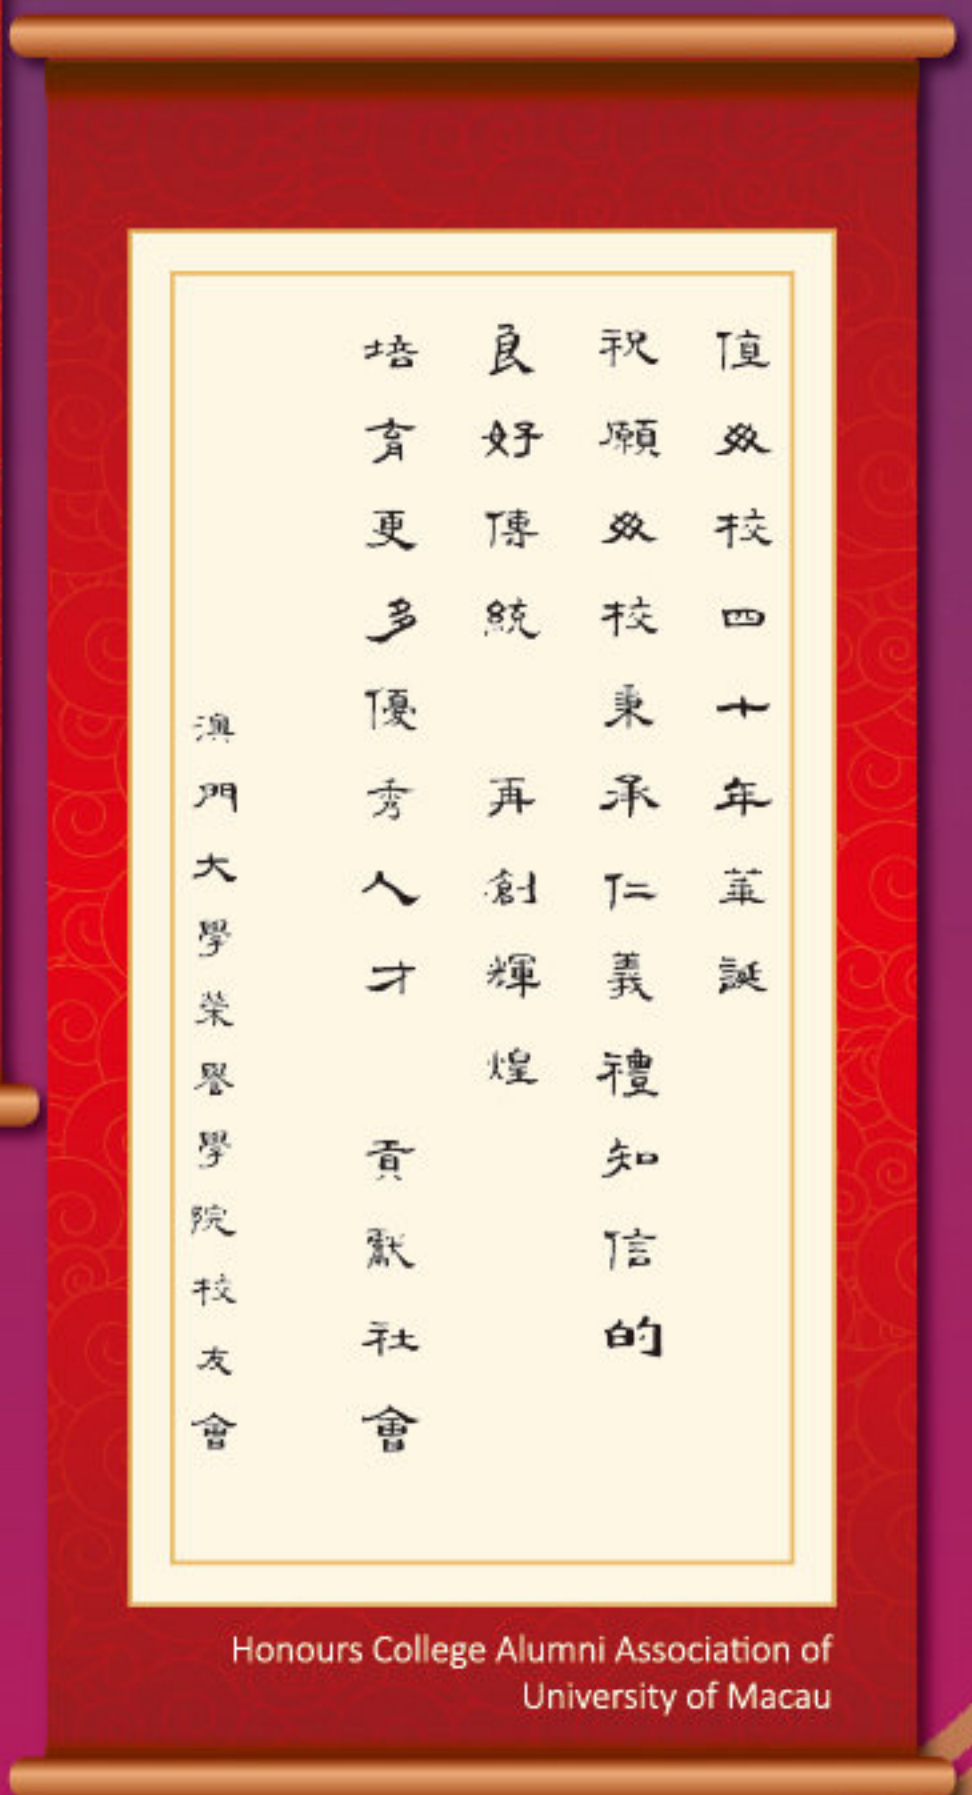 值㸚校四十年華誕
祝願㸚校秉承仁義禮知信的
良好傳統 再創輝煌
培育更多優秀人才 貢獻社會
澳門大學榮譽學院校友會
Honours College Alumni Association of
University of Macau